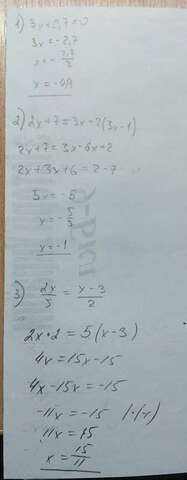 1) 3x+2,7=0
3x=-2,7
x=-2,7/3
x=-0,9
2) 2x+7=3x-2(3x-1)
2x+7=3x-6x+2
2x+3x+6=2-7
5x=-5
x=-5/5
x=-1
3) 2x/5=x-3/2
2x•2=5(x-3)
4x=15x-15
4x-15x=-15
-11x=-15 |•(-1)
11x=15
x=15/11